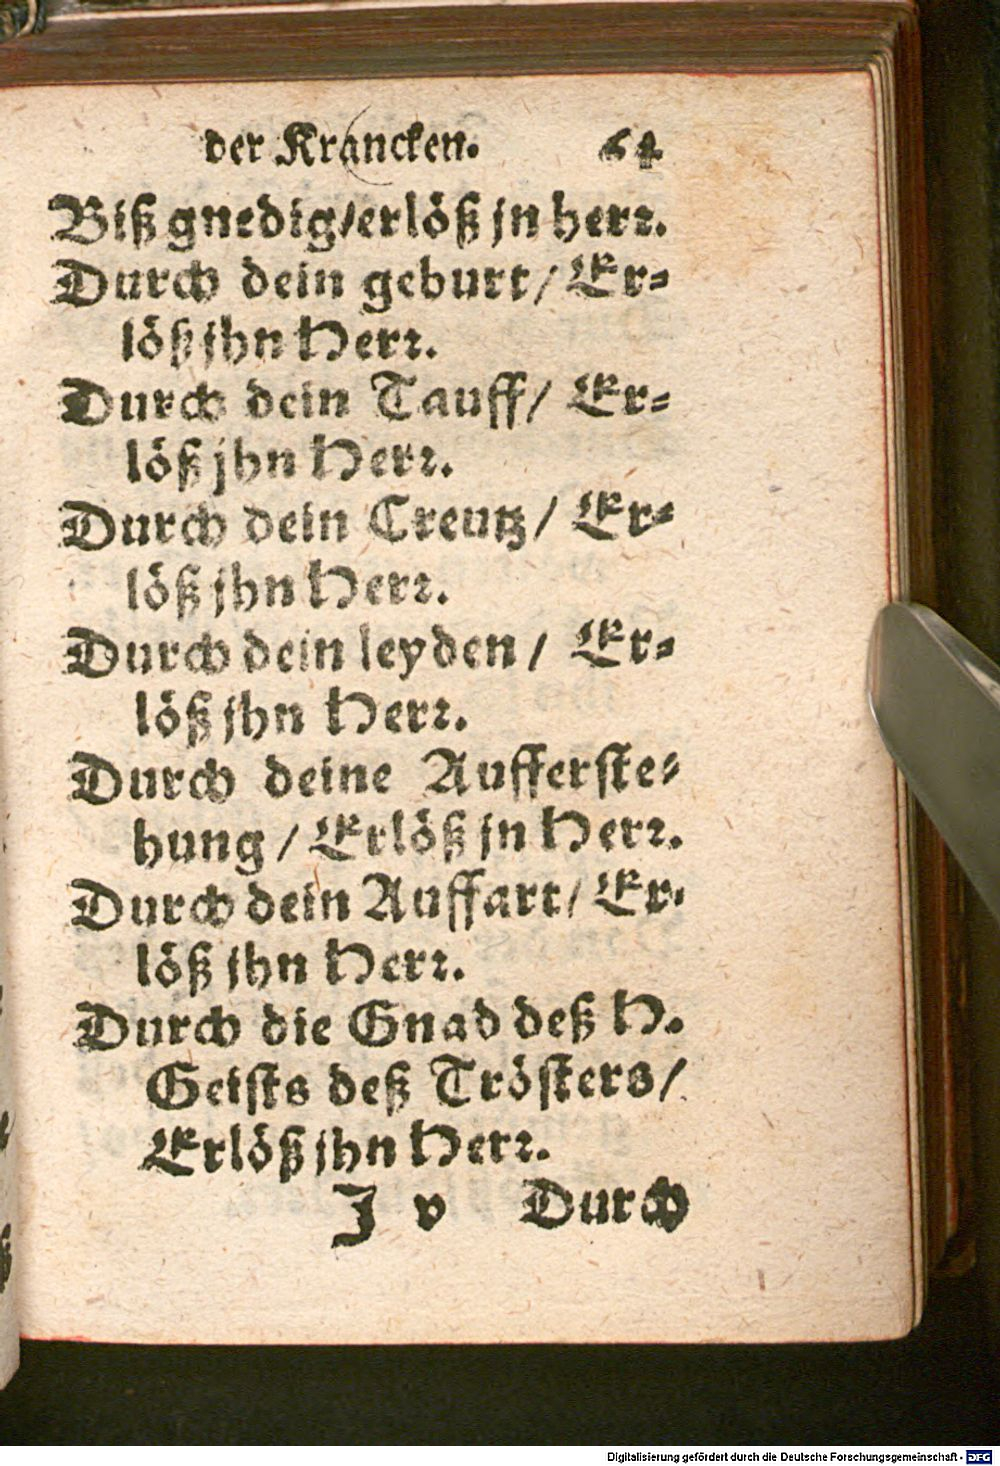 der Krancken. 64
Biß gnedig/erlöß jn herꝛ.
Durch dein geburt/ Er⸗
löß jhn Herꝛ.
Durch dein Tauff/ Er⸗
löß jhn Herꝛ.
Durch dein Creutz/ Er⸗
löß jhn Herꝛ.
Durch dein leyden/ Er⸗
löß jhn Herꝛ.
Durch deine Aufferste⸗
hung/ Erlöß jn Herꝛ.
Durch dein Auffart/ Er⸗
löß jhn Herꝛ.
Durch die Gnad deß H.
Geists deß Trösters/
Erlöß jhn Herꝛ.
J v Durch
Digitalisierung gefördert durch die Deutsche Forschungsgemeinschaft - DFG